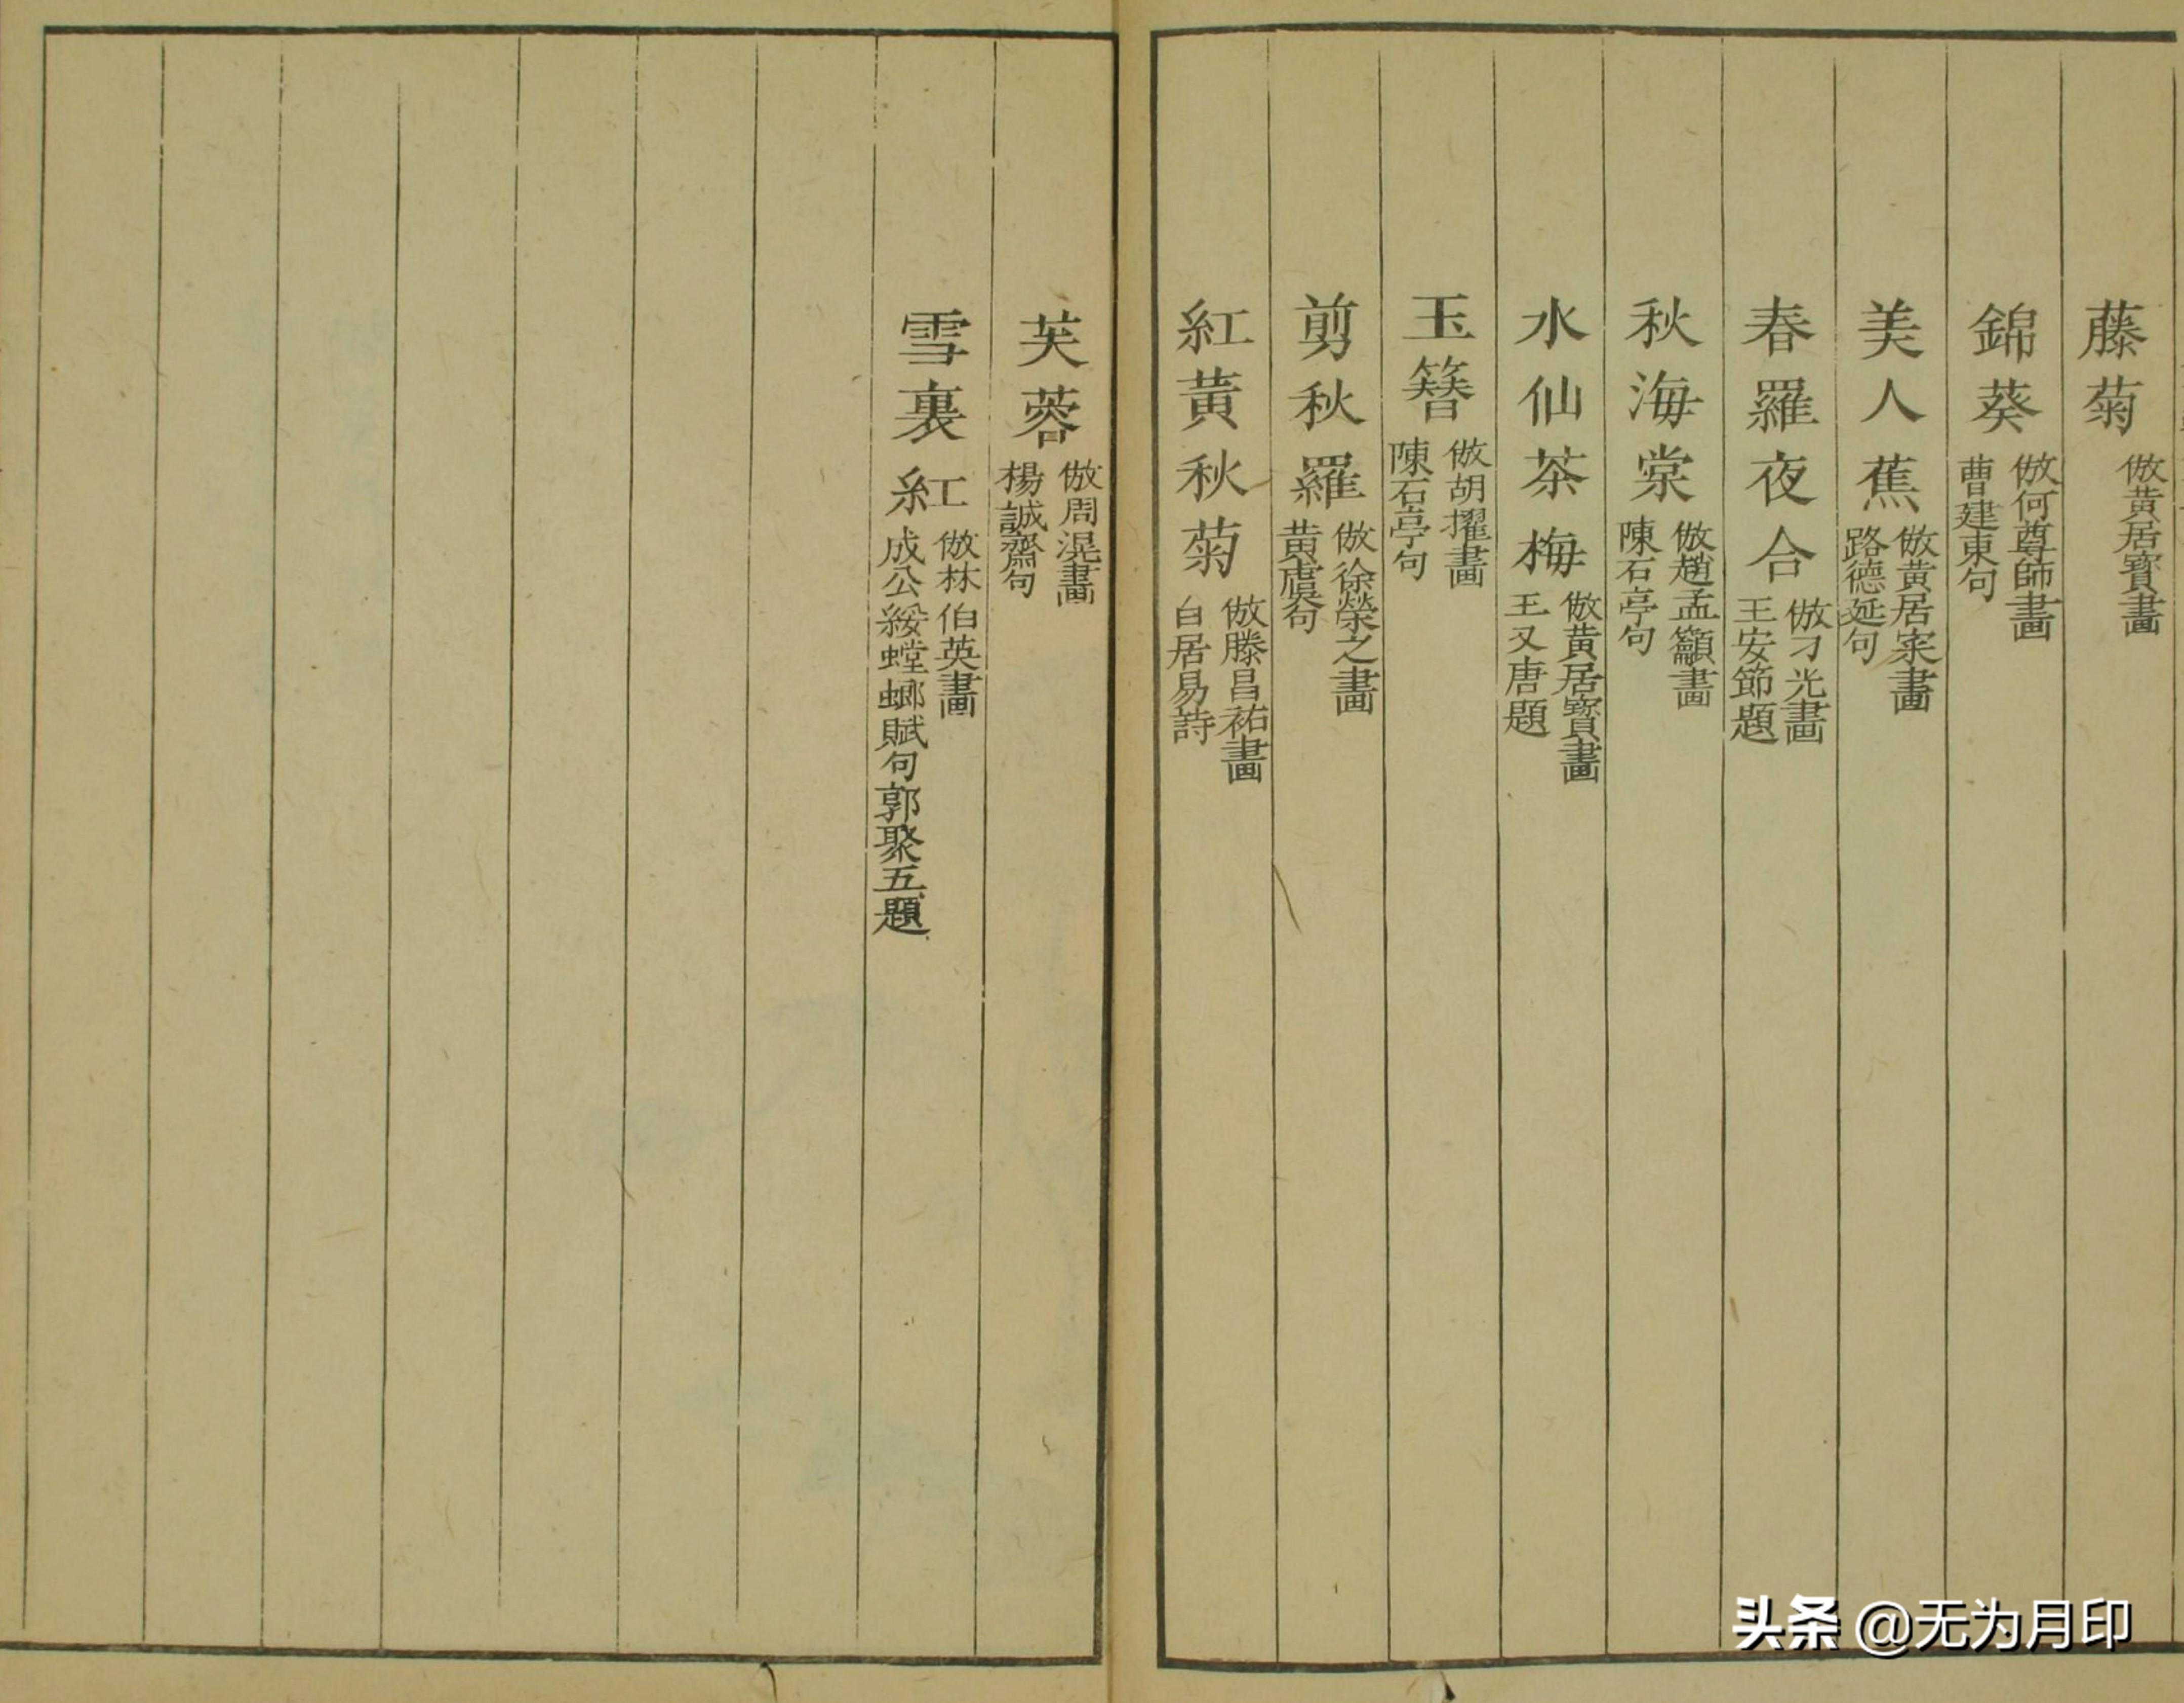 藤菊 倣黃居寶畫
錦葵 倣何尊師畫 曹建東句
美人蕉 倣黃居寀畫 路德延句
春羅夜合 倣刁光畫 王安節題
秋海棠 倣趙孟籲畫 陳石亭句
水仙茶梅 倣黃居寶畫 王又唐題
玉簪 倣胡擢畫 陳石亭句
剪秋羅 倣徐榮之畫 黃虞句
紅黃秋菊 倣滕昌祐畫 白居易詩
芙蓉 倣周滉畫 楊誠齋句
雪裏紅 倣林伯英畫 成公綏螳螂賦句郭聚五題
头条 @无为月印